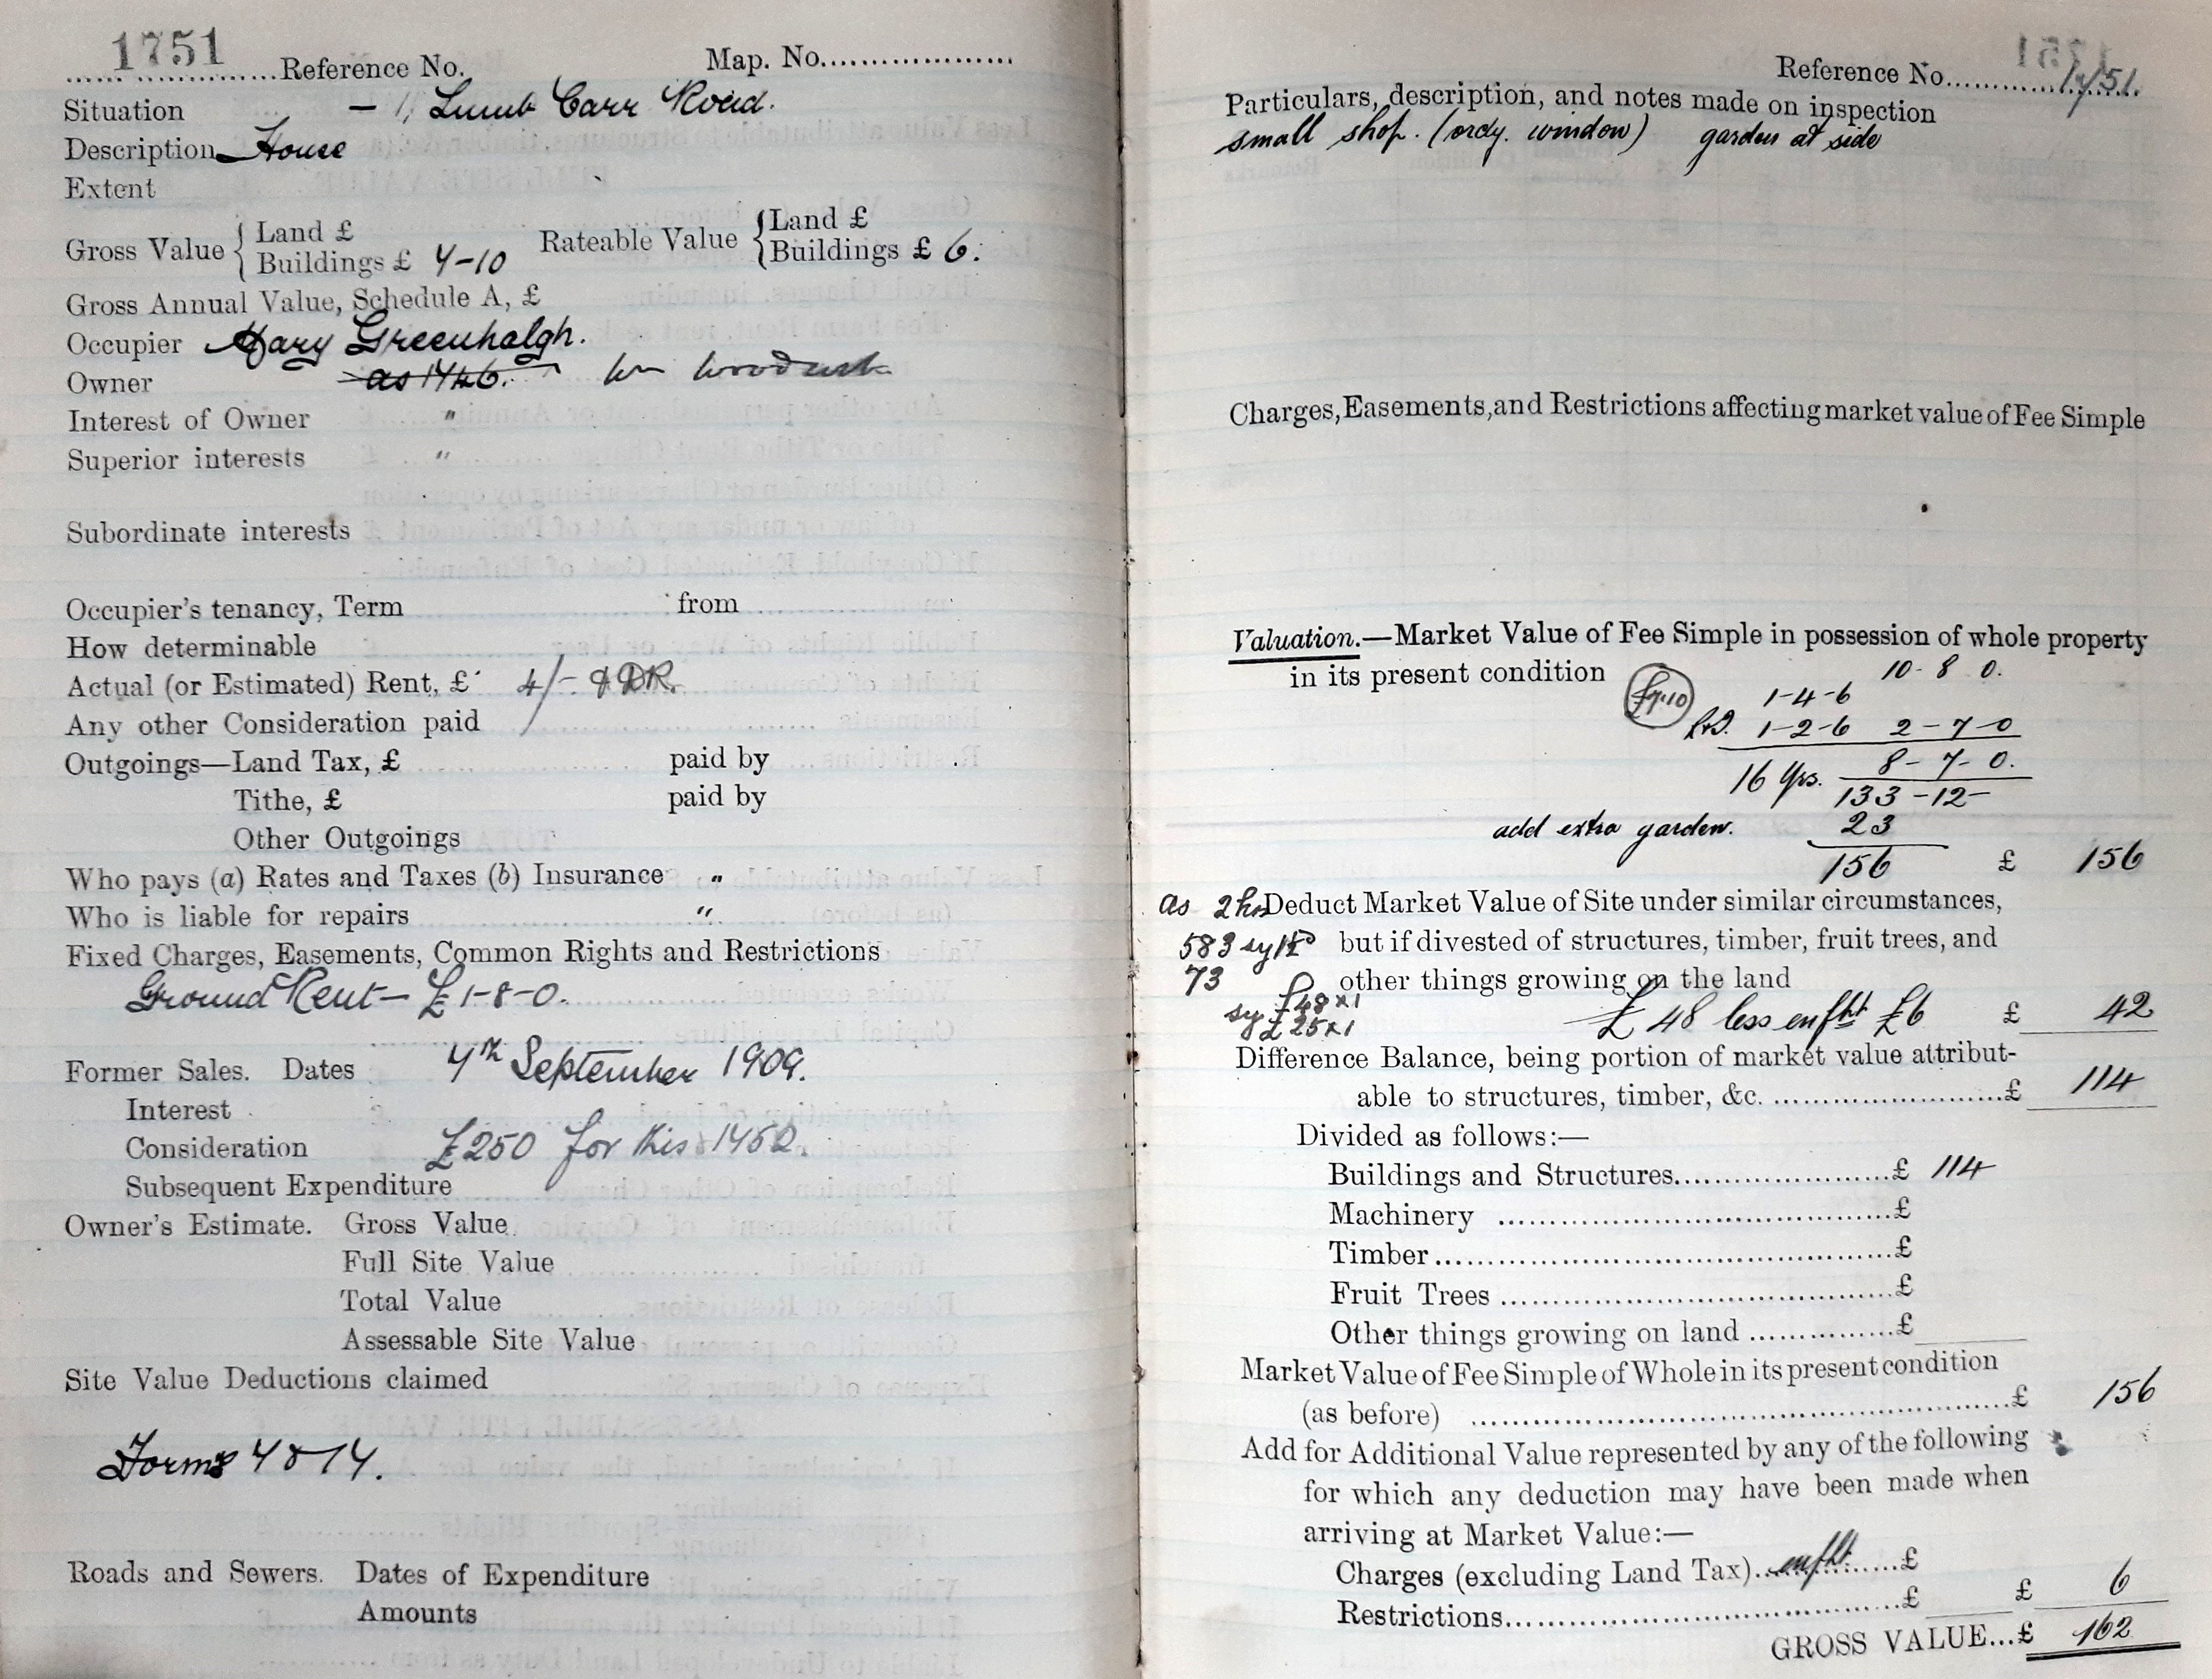 1751 Reference No. Map. No.
Situation - 1, Lumb Carr Road.
Description House
Extent
Gross Value { Land £
Buildings £ 4-10
Rateable Value { Land £
Buildings £ 6.
Gross Annual Value, Schedule A, £
Occupier Mary Greenhalgh.
Owner as 1746. Wm
Interest of Owner "
Superior interests "
Subordinate interests
Occupier's tenancy, Term from
How determinable
Actual (or Estimated) Rent, £ 4/- & DR.
Any other Consideration paid
Outgoings—Land Tax, £ paid by
Tithe, £ paid by
Other Outgoings
Who pays (a) Rates and Taxes (b) Insurance "
Who is liable for repairs "
Fixed Charges, Easements, Common Rights and Restrictions
Ground Rent - £1-8-0.
Former Sales. Dates 4th September 1909.
Interest
Consideration £250 for this
Subsequent Expenditure
Owner's Estimate. Gross Value
Full Site Value
Total Value
Assessable Site Value
Site Value Deductions claimed
Forms 4 & 14.
Roads and Sewers. Dates of Expenditure
Amounts
Reference No. 1751.
Particulars, description, and notes made on inspection
small shop. (ordy. window) garden at side
Charges, Easements, and Restrictions affecting market value of Fee Simple
Valuation.—Market Value of Fee Simple in possession of whole property
in its present condition 10-8 0.
1-4-6
1-2-6 2-7-0
8-7-0.
16 Yrs. 133-12-
add extra garden. 23
156 £ 156
as 2 hos Deduct Market Value of Site under similar circumstances,
583 sy but if divested of structures, timber, fruit trees, and
73 other things growing on the land
£48 x 1
sy £25 x 1
£48 less enfht £6 £ 42
Difference Balance, being portion of market value attribut-
able to structures, timber, &c. £ 114
Divided as follows:—
Buildings and Structures £ 114
Machinery £
Timber £
Fruit Trees £
Other things growing on land £
Market Value of Fee Simple of Whole in its present condition
(as before) £ 156
Add for Additional Value represented by any of the following
for which any deduction may have been made when
arriving at Market Value:—
Charges (excluding Land Tax) enfht. £
Restrictions £ £ 6
GROSS VALUE...£ 162